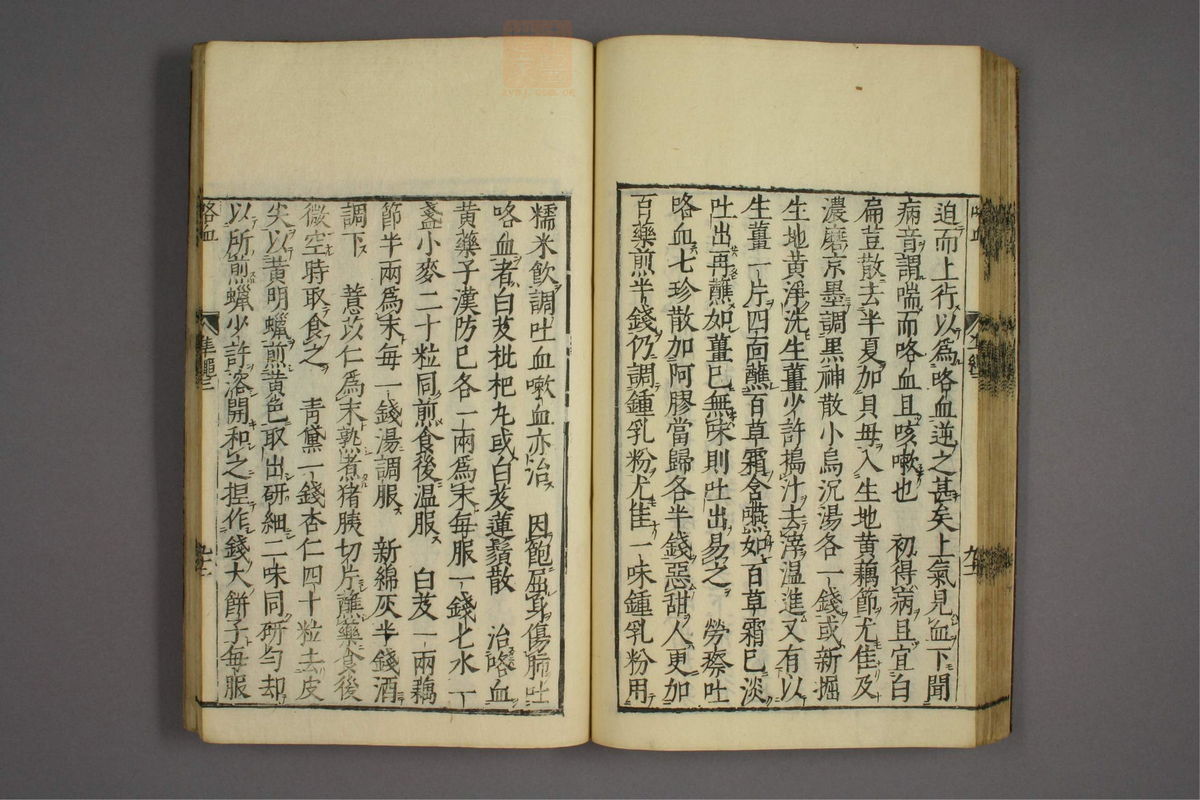 迫而上行以爲咯血逆之甚矣上氣見血下聞
病音謂喘而咯血且咳嗽也 初得病且宜白
扁荳散去半夏加貝母入生地黄藕節尤佳及
濃磨京墨調黒神散小烏沉湯各一錢或新掘
生地黄淨洗生薑少許搗汁去滓温進又有以
生薑一片四面蘸百草霜含嚥如百草霜已淡
吐出再蘸如薑已無味則吐出易之 勞瘵吐
咯血七珍散加阿膠當歸各半錢惡甜人更加
百藥煎半錢仍調鍾乳粉尤佳一味鍾乳粉用
糯米飲調吐血嗽血亦治 因飽屈身傷肺吐
咯血者白芨枇杷丸或白芨蓮鬚散 治咯血
黄藥子漢防已各一兩爲末每服一錢匕水一
盞小麥二十粒同煎食後温服 白芨一兩藕
節半兩爲末每一錢湯調服 新綿灰半錢酒
調下 薏苡仁爲末熟煮猪胰切片蘸藥食後
微空時取食之 青黛一錢杏仁四十粒去皮
尖以黄明蝋煎黄色取出研細二味同研勻却
以所煎蝋少許溶開和之捏作錢大餅子每服
咯血
準繩三